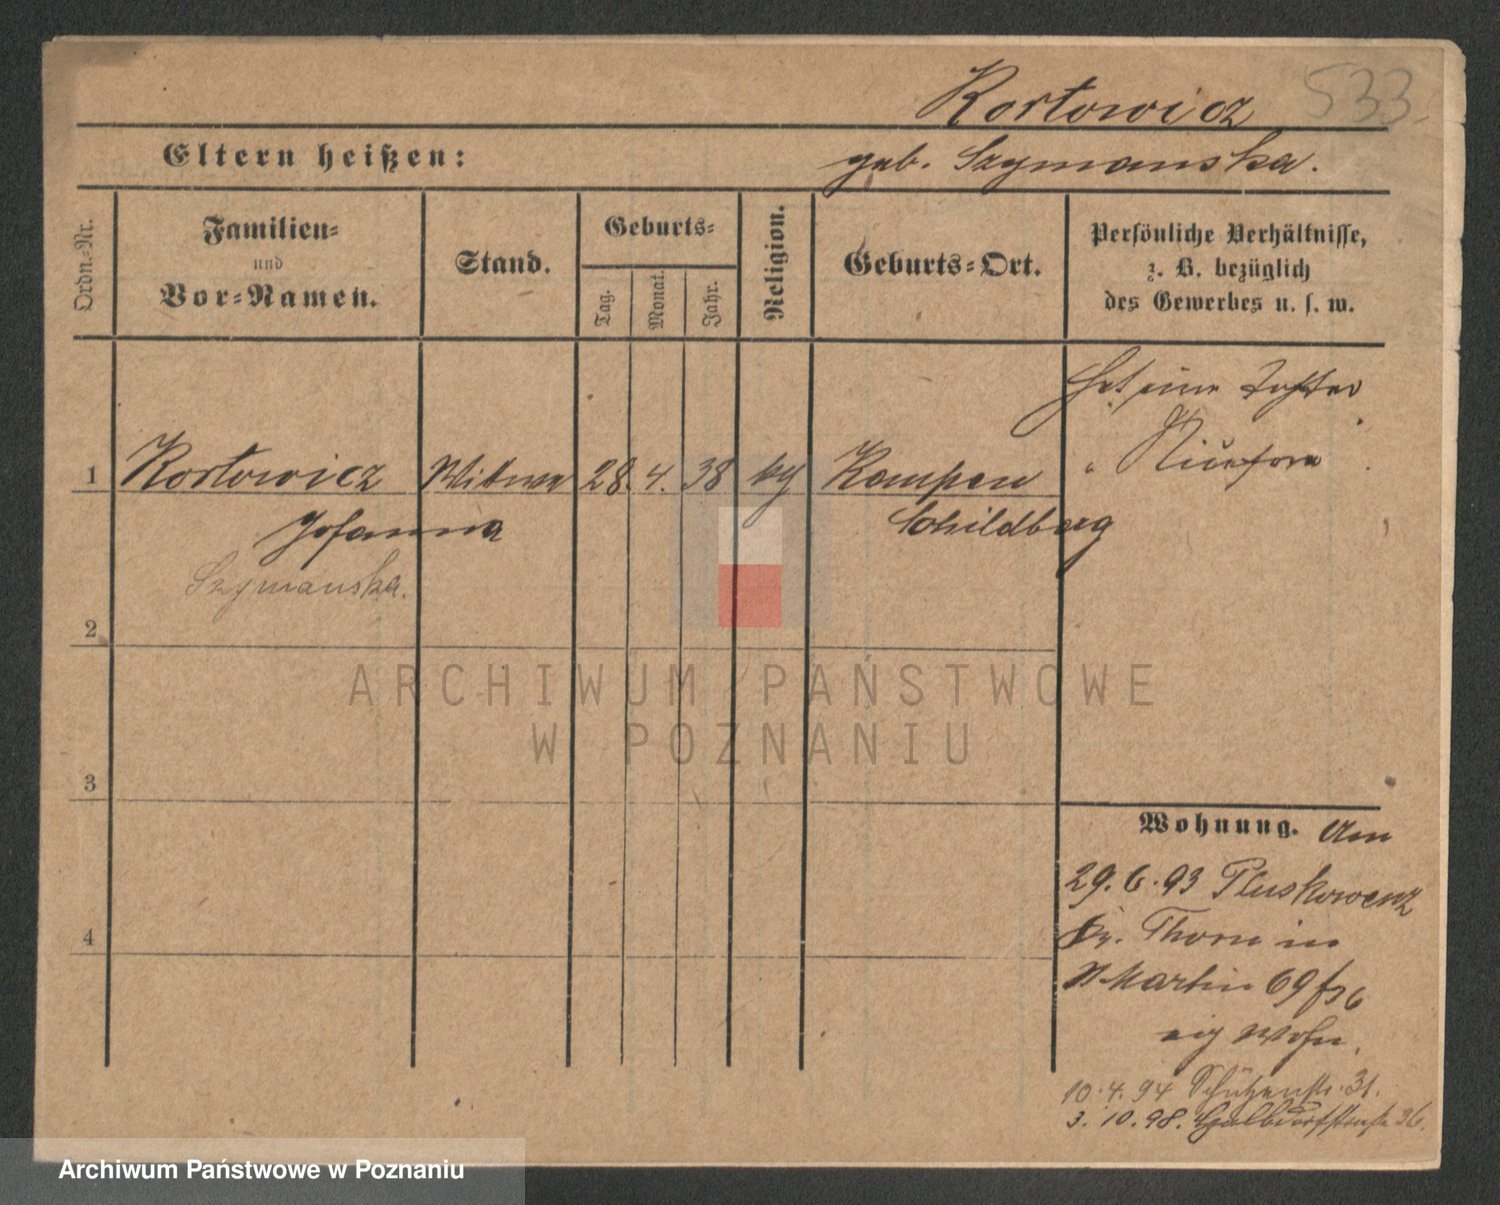 Kortowicz 533
Eltern heißen: geb. Szymanska.
Ordn.-Nr.
Familien-
und
Vor-Namen.
Stand.
Geburts-
Tag.
Monat.
Jahr.
Religion.
Geburts-Ort.
Persönliche Verhältnisse,
z. B. bezüglich
des Gewerbes u. s. w.
Hat eine Tochter
1 Kortowicz Witwe 28. 4. 38 kg Kempen
Johanna Schildberg
Szymanska.
2
3
4
Wohnung. Am
29.6.93 Pluskowenz
Kr. Thorn in
St Martin 69
eig Wohn.
10.4.94 Schützenstr. 31.
3.10.98. Halbdorfstraße 36.
ARCHIWUM PAŃSTWOWE
W POZNANIU
Archiwum Państwowe w Poznaniu